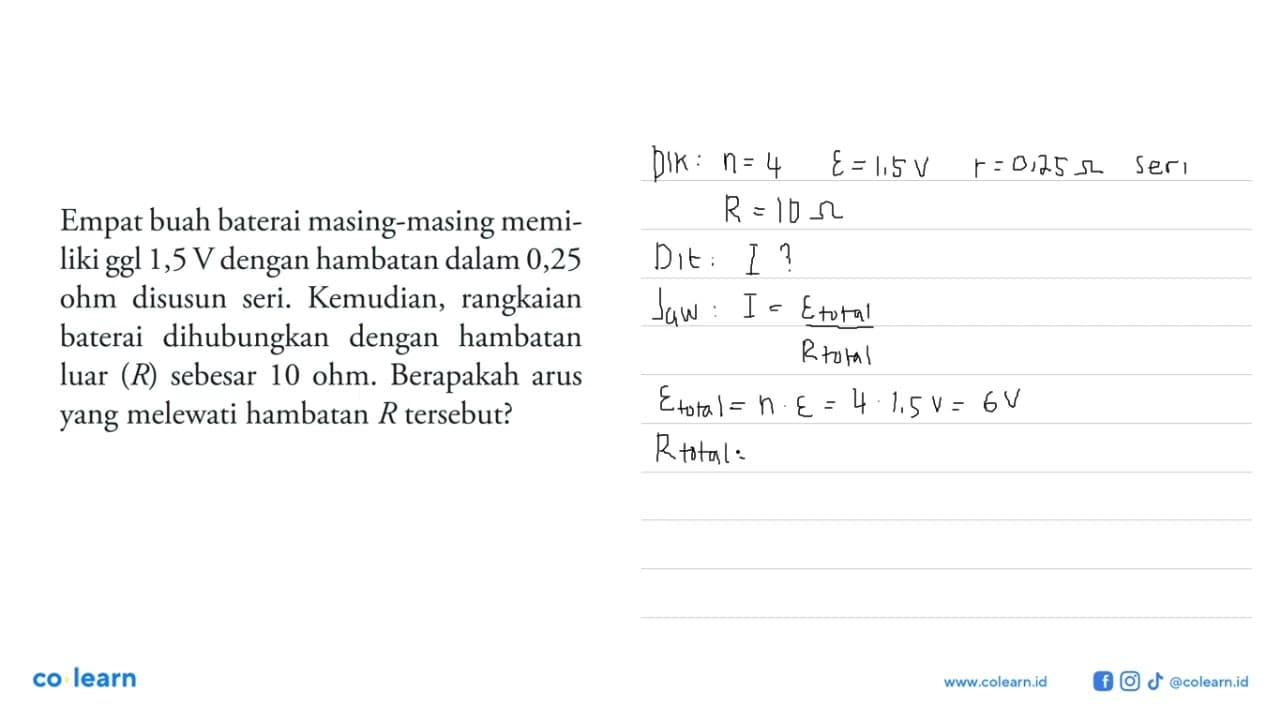 Empat buah baterai masing-masing memi-
liki ggl 1,5 V dengan hambatan dalam 0,25
ohm disusun seri. Kemudian, rangkaian
baterai dihubungkan dengan hambatan
luar (R) sebesar 10 ohm. Berapakah arus
yang melewati hambatan R tersebut?
Dik: n = 4 ℇ = 1,5 V r = 0,25 Ω seri
R = 10 Ω
Dit: I ?
Jaw: I = ℇtotal
Rtotal
ℇtotal = n . ℇ = 4 . 1,5 V = 6 V
Rtotal:
co learn
www.colearn.id
@colearn.id